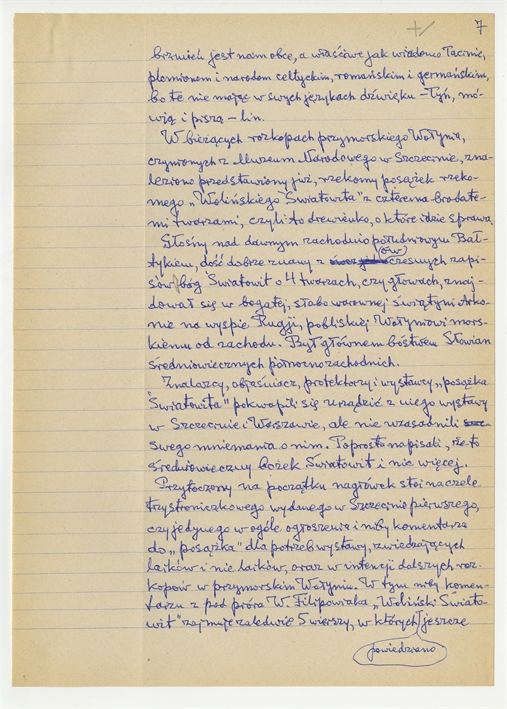 +/ 7
brzmień jest nam obce, a właściwe jak wiadomo łacinie,
plemionom i narodom celtyckim, romańskim i germańskim,
bo te nie mając w swych językach dźwięku – Łyń, mó-
wią i piszą – lin.
W bieżących rozkopach przymorskiego Wołynia,
czynionych z Muzeum Narodowego w Szczecinie, zna-
leziono przedstawiony już, rzekomy posążek rzeko-
mego „Wolińskiego Światowita" z czterema brodate-
mi twarzami, czyli to drewienko, o które idzie sprawa.
Głośny nad dawnym zachodnio południowym Bał-
tykiem, dość dobrze znany z (ów)czesnych zapi-
sów bóg Światowit o 4 twarzach, czy głowach, znaj-
dował się w bogatej, słabo warownej świątyni Arko-
nie na wyspie Rugji, pobliskiej Wołyniowi mors-
kiemu od zachodu. Był głównem bóstwem Słowian
średniowiecznych północno zachodnich.
Znalazcy, objaśniacz, protektorzy i wystawcy „posążka
Światowita" pokwapili się urządzić z niego wystawy
w Szczecinie i Warszawie, ale nie uzasadnili
swego mniemania o nim. Poprostu napisali, że to
średniowieczny bożek Światowit i nic więcej.
Przytoczony na początku nagłówek stoi na czole
trzystroniczkowego wydanego w Szczecinie pierwszego,
czy jedynego w ogóle ogłoszenia i niby komentarza
do „posążka" dla potrzeb wystawy, zwiedzających
laików i nie laików, oraz w intencji dalszych roz-
kopów w przymorskim Wołyniu. W tym niby komen-
tarzu z pod pióra W. Filipowiaka „Woliński Świato-
wit" zajmuje zaledwie 5 wierszy, w których jeszcze
powiedziano